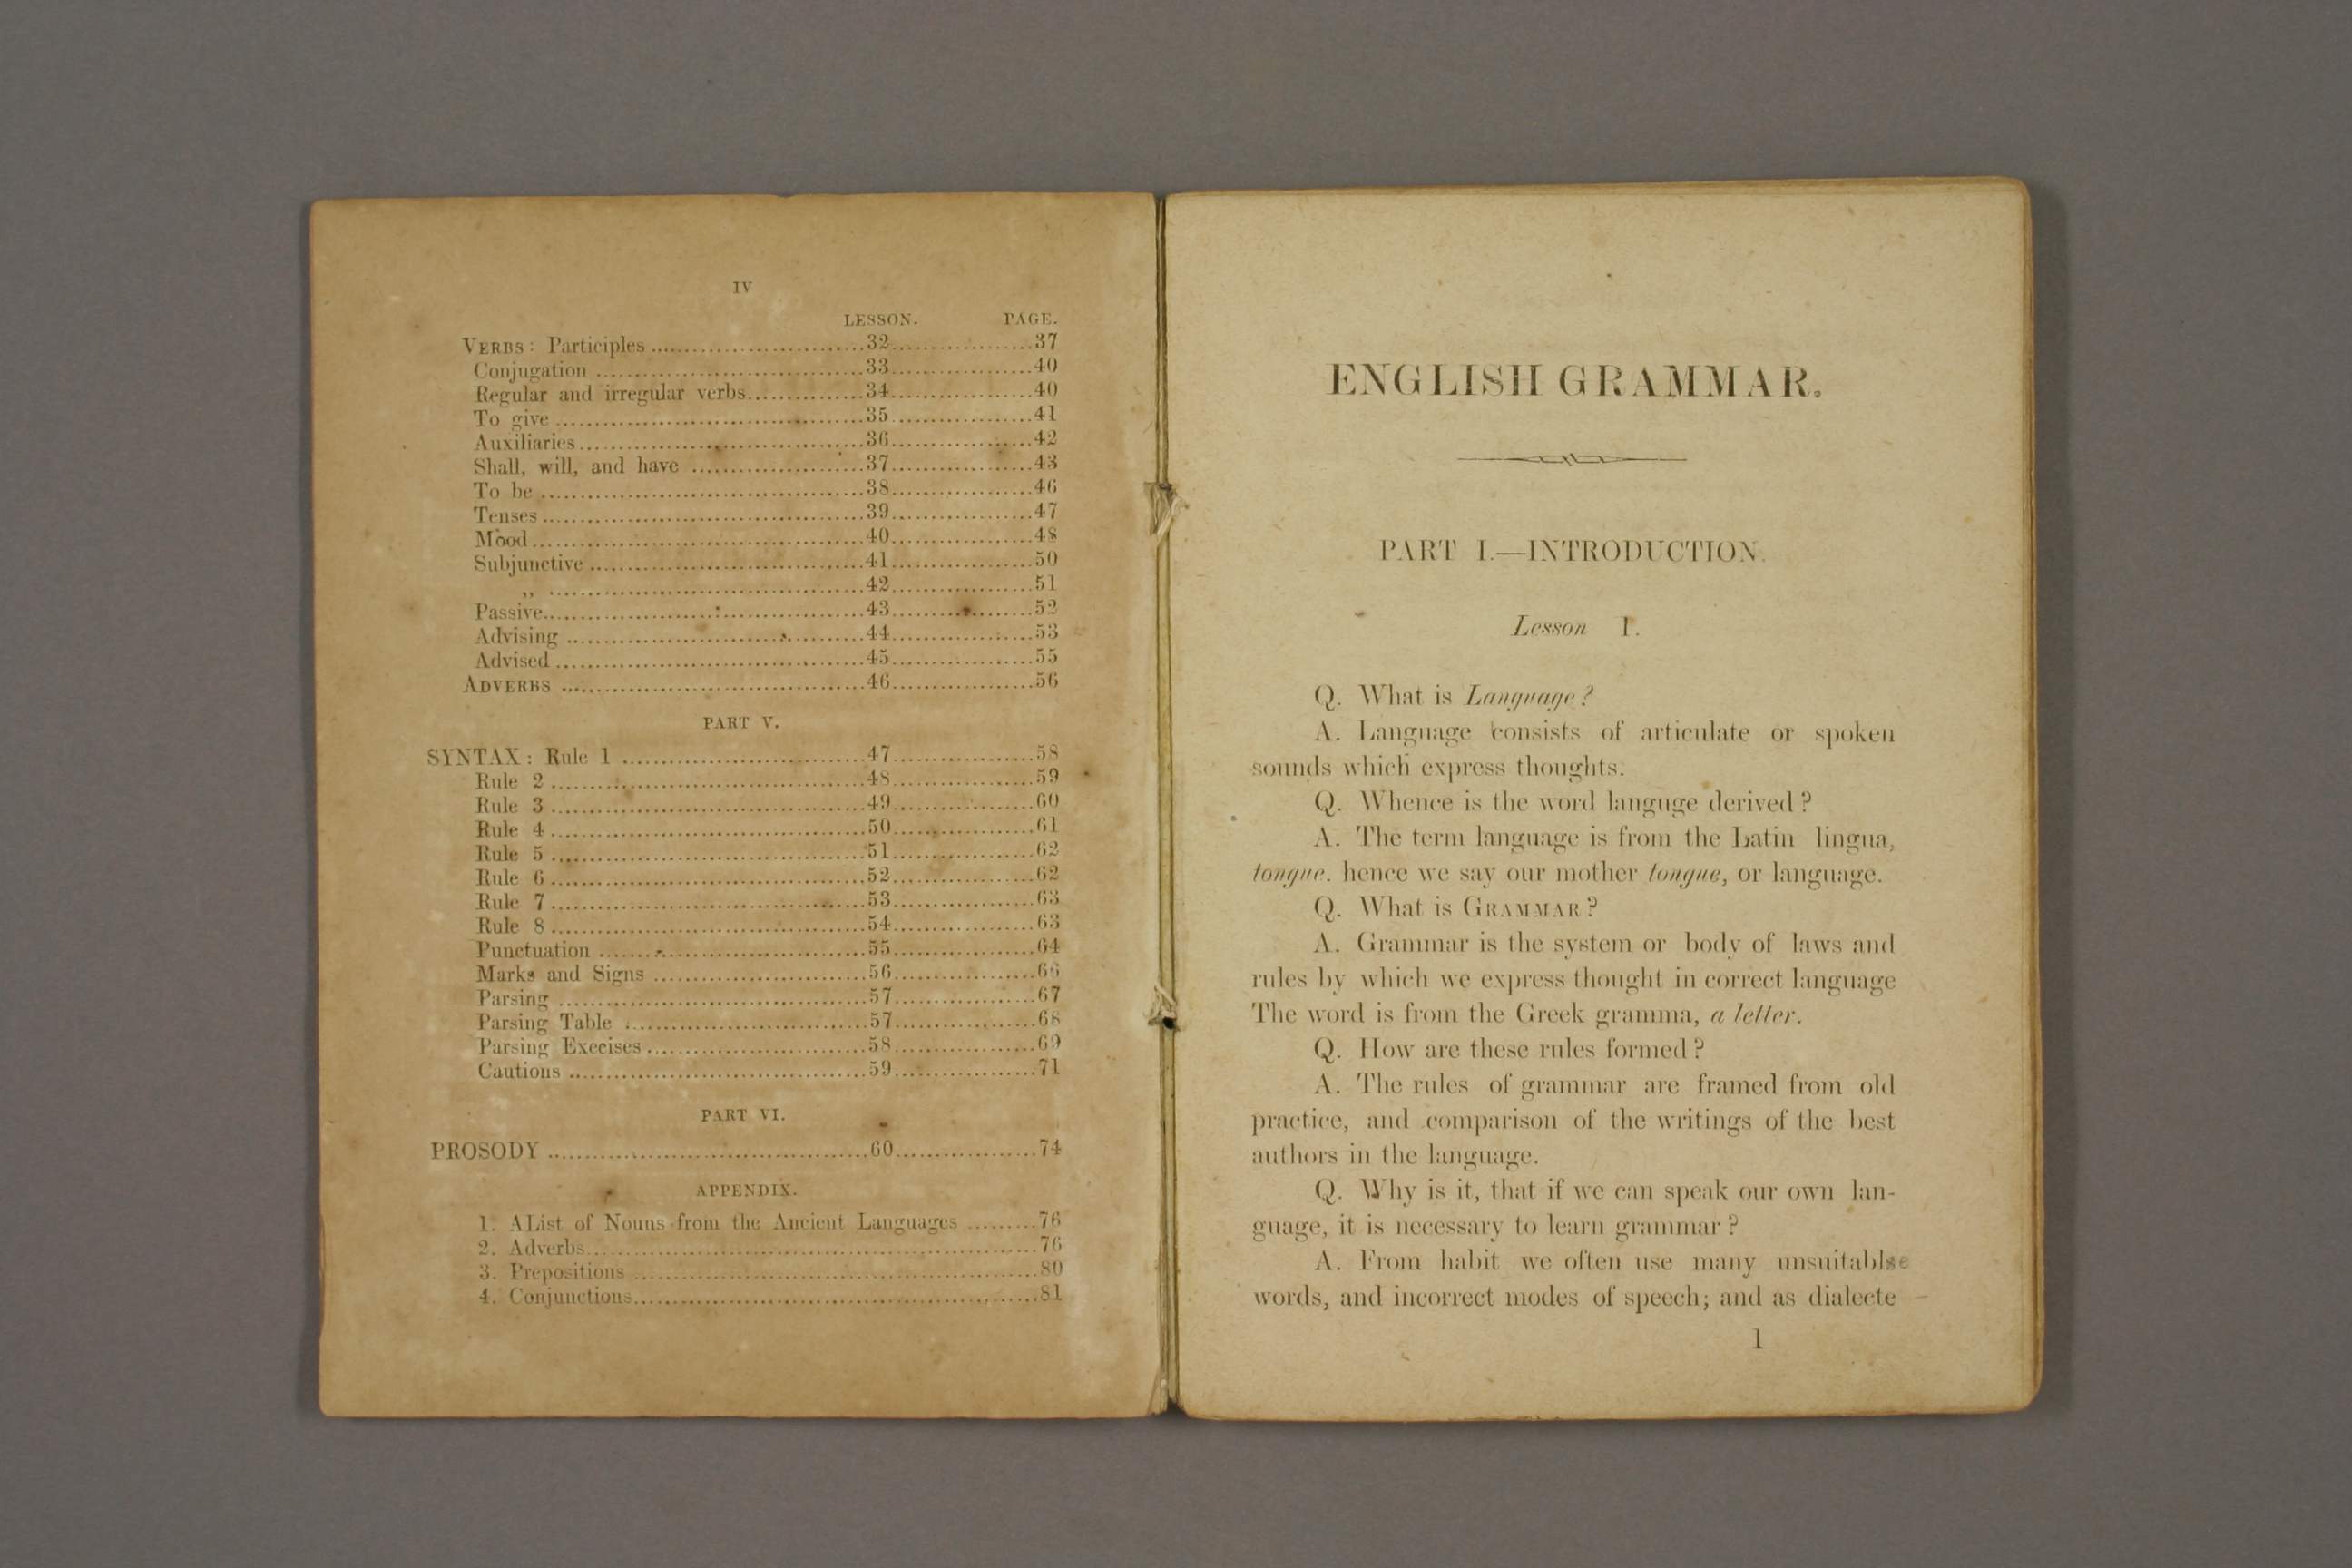 IV
LESSON. PAGE.
VERBS: Participles ........................... 32 .................. 37
Conjugation ................................... 33 .................. 40
Regular and irregular verbs ............... 34 .................. 40
To give ........................................ 35 .................. 41
Auxiliaries ..................................... 36 .................. 42
Shall, will, and have ...................... 37 .................. 43
To be .......................................... 38 .................. 46
Tenses ......................................... 39 .................. 47
Mood ........................................... 40 .................. 48
Subjunctive ................................... 41 .................. 50
„ ......................................... 42 .................. 51
Passive ......................................... 43 .................. 52
Advising ....................................... 44 .................. 53
Advised ........................................ 45 .................. 55
ADVERBS ....................................... 46 .................. 56
PART V.
SYNTAX: Rule 1 ............................... 47 .................. 58
Rule 2 ......................................... 48 .................. 59
Rule 3 ......................................... 49 .................. 60
Rule 4 ......................................... 50 .................. 61
Rule 5 ......................................... 51 .................. 62
Rule 6 ......................................... 52 .................. 62
Rule 7 ......................................... 53 .................. 63
Rule 8 ......................................... 54 .................. 63
Punctuation ................................... 55 .................. 64
Marks and Signs ............................ 56 .................. 66
Parsing ........................................ 57 .................. 67
Parsing Table ............................... 57 .................. 68
Parsing Execises ............................ 58 .................. 69
Cautions ....................................... 59 .................. 71
PART VI.
PROSODY ......................................... 60 .................. 74
APPENDIX.
1. AList of Nouns from the Ancient Languages ......... 76
2. Adverbs ......................................................... 76
3. Prepositions ................................................... 80
4. Conjunctions ................................................... 81
ENGLISH GRAMMAR.
PART I.—INTRODUCTION.
Lesson I.
Q. What is Language?
A. Language consists of articulate or spoken
sounds which express thoughts.
Q. Whence is the word languge derived?
A. The term language is from the Latin lingua,
tongue. hence we say our mother tongue, or language.
Q. What is GRAMMAR?
A. Grammar is the system or body of laws and
rules by which we express thought in correct language
The word is from the Greek gramma, a letter.
Q. How are these rules formed?
A. The rules of grammar are framed from old
practice, and comparison of the writings of the best
authors in the language.
Q. Why is it, that if we can speak our own lan-
guage, it is necessary to learn grammar?
A. From habit we often use many unsuitablse
words, and incorrect modes of speech; and as dialecte
1